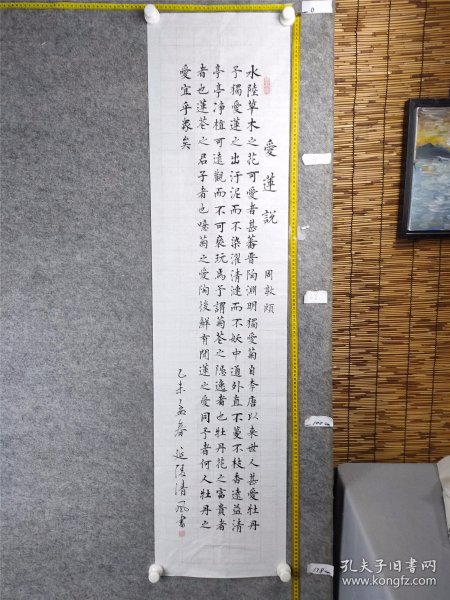 愛蓮說
周敦頤
水陸草木之花可愛者甚蕃晉陶淵明獨愛菊自李唐以來世人甚愛牡丹
予獨愛蓮之出汙泥而不染濯清漣而不妖中通外直不蔓不枝香遠益清
亭亭净植可遠觀而不可褻玩焉予謂菊花之隱逸者也牡丹花之富貴者
者也蓮花之君子者也噫菊之愛陶後鮮有聞蓮之愛同予者何人牡丹之
愛宜乎衆矣
乙未孟春 延陵清風書
0
100cm
178cm
孔夫子旧书网
www.kongfz.com